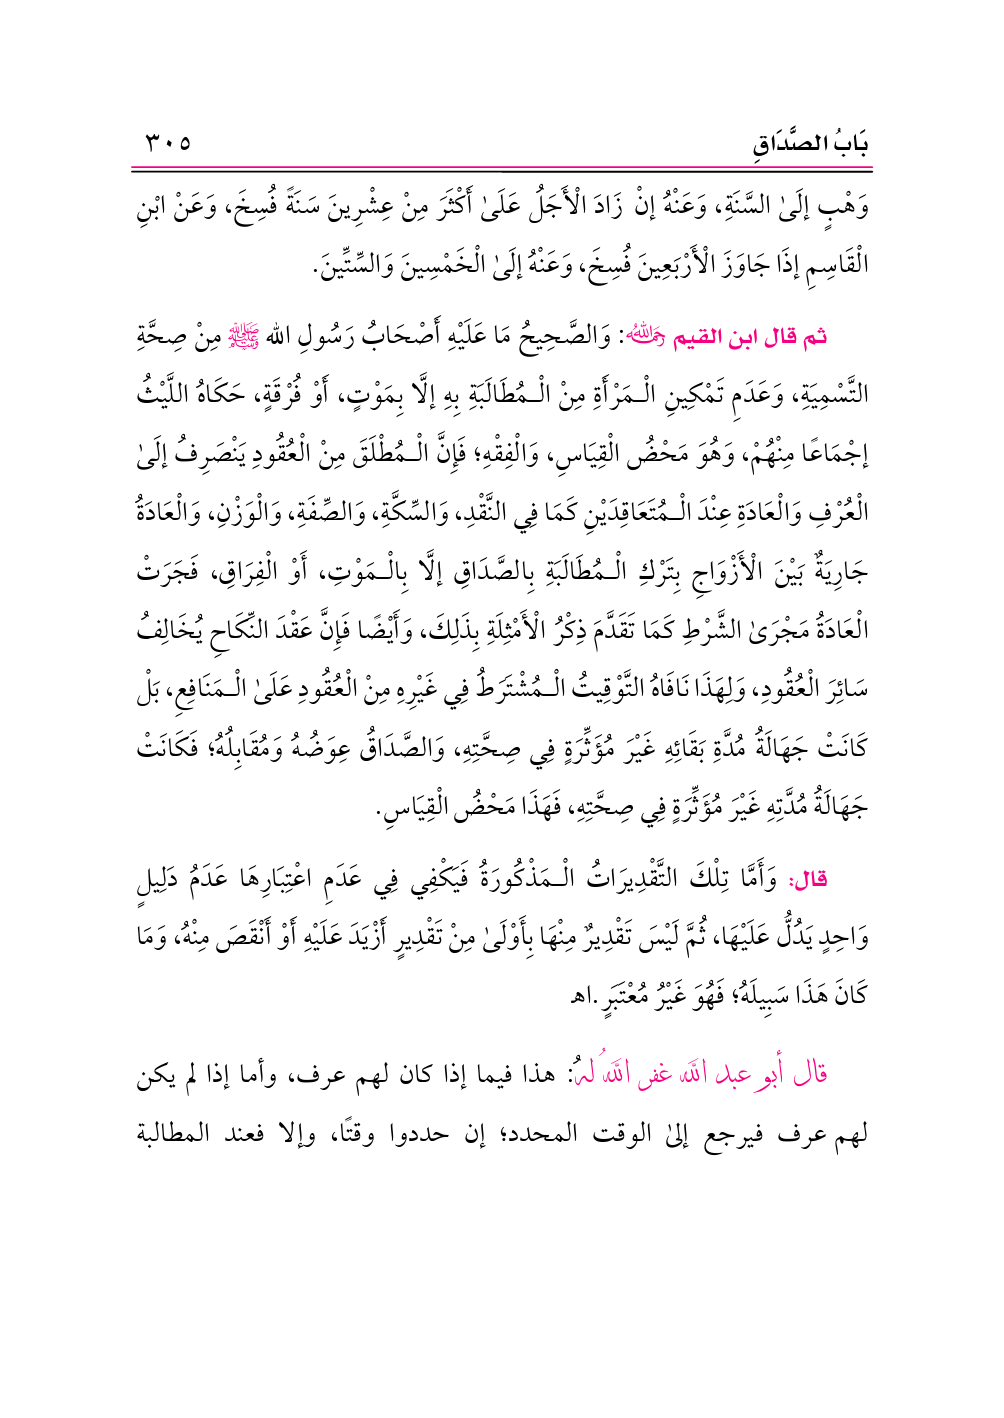 بَابُ الصَّدَاقِ ٣٠٥
وَهْبٍ إلَىٰ السَّنَةِ، وَعَنْهُ إنْ زَادَ الْأَجَلُ عَلَىٰ أَكْثَرَ مِنْ عِشْرِينَ سَنَةً فُسِخَ، وَعَنْ ابْنِ
الْقَاسِمِ إذَا جَاوَزَ الْأَرْبَعِينَ فُسِخَ، وَعَنْهُ إلَىٰ الْخَمْسِينَ وَالسِّتِّينَ.
ثم قال ابن القيم رحمه الله: وَالصَّحِيحُ مَا عَلَيْهِ أَصْحَابُ رَسُولِ الله ﷺ مِنْ صِحَّةِ
التَّسْمِيَةِ، وَعَدَمِ تَمْكِينِ الْـمَرْأَةِ مِنْ الْـمُطَالَبَةِ بِهِ إلَّا بِمَوْتٍ، أَوْ فُرْقَةٍ، حَكَاهُ اللَّيْثُ
إجْمَاعًا مِنْهُمْ، وَهُوَ مَحْضُ الْقِيَاسِ، وَالْفِقْهِ؛ فَإِنَّ الْـمُطْلَقَ مِنْ الْعُقُودِ يَنْصَرِفُ إلَىٰ
الْعُرْفِ وَالْعَادَةِ عِنْدَ الْـمُتَعَاقِدَيْنِ كَمَا فِي النَّقْدِ، وَالسِّكَّةِ، وَالصِّفَةِ، وَالْوَزْنِ، وَالْعَادَةُ
جَارِيَةٌ بَيْنَ الْأَزْوَاجِ بِتَرْكِ الْـمُطَالَبَةِ بِالصَّدَاقِ إلَّا بِالْـمَوْتِ، أَوْ الْفِرَاقِ، فَجَرَتْ
الْعَادَةُ مَجْرَىٰ الشَّرْطِ كَمَا تَقَدَّمَ ذِكْرُ الْأَمْثِلَةِ بِذَلِكَ، وَأَيْضًا فَإِنَّ عَقْدَ النِّكَاحِ يُخَالِفُ
سَائِرَ الْعُقُودِ، وَلِهَذَا نَافَاهُ التَّوْقِيتُ الْـمُشْتَرَطُ فِي غَيْرِهِ مِنْ الْعُقُودِ عَلَىٰ الْـمَنَافِعِ، بَلْ
كَانَتْ جَهَالَةُ مُدَّةِ بَقَائِهِ غَيْرَ مُؤَثِّرَةٍ فِي صِحَّتِهِ، وَالصَّدَاقُ عِوَضُهُ وَمُقَابِلُهُ؛ فَكَانَتْ
جَهَالَةُ مُدَّتِهِ غَيْرَ مُؤَثِّرَةٍ فِي صِحَّتِهِ، فَهَذَا مَحْضُ الْقِيَاسِ.
قال: وَأَمَّا تِلْكَ التَّقْدِيرَاتُ الْـمَذْكُورَةُ فَيَكْفِي فِي عَدَمِ اعْتِبَارِهَا عَدَمُ دَلِيلٍ
وَاحِدٍ يَدُلُّ عَلَيْهَا، ثُمَّ لَيْسَ تَقْدِيرٌ مِنْهَا بِأَوْلَىٰ مِنْ تَقْدِيرٍ أَزْيَدَ عَلَيْهِ أَوْ أَنْقَصَ مِنْهُ، وَمَا
كَانَ هَذَا سَبِيلَهُ؛ فَهُوَ غَيْرُ مُعْتَبَرٍ.اهـ
قال أبو عبد الله غفر اللهُ لهُ: هذا فيما إذا كان لهم عرف، وأما إذا لم يكن
لهم عرف فيرجع إلىٰ الوقت المحدد؛ إن حددوا وقتًا، وإلا فعند المطالبة